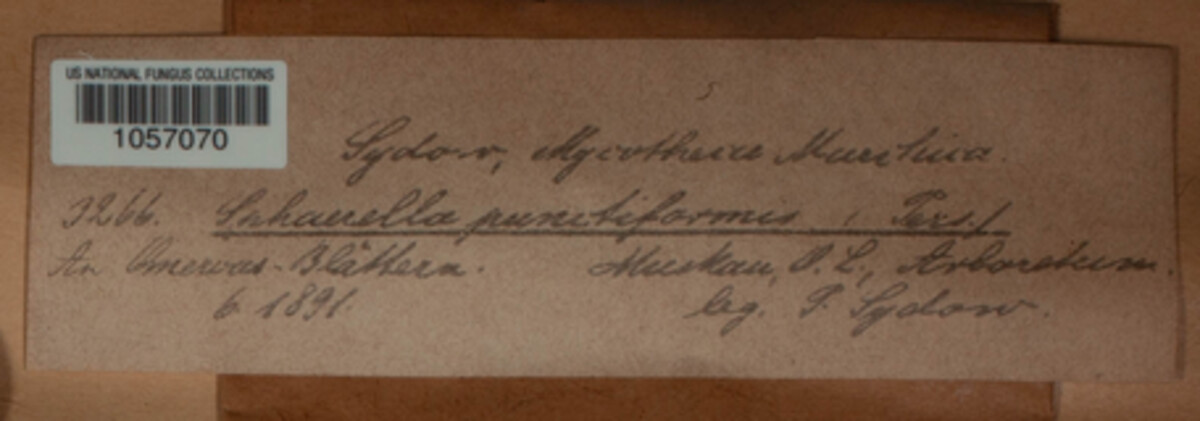 US NATIONAL FUNGUS COLLECTIONS
1057070
5
Sydow, Mycotheca Marchica.
3266. Sphaerella punctiformis (Pers.)
An Quercus-Blättern. Muskau, O. L., Arboretum.
6. 1891. leg. P. Sydow.